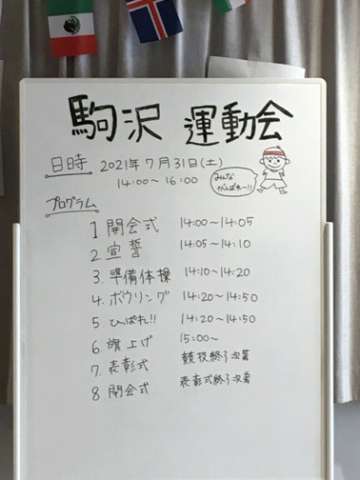 駒沢 運動会
日時 2021年7月31日(土)
14:00〜16:00
みんな
がんばれー!!
プログラム
1 開会式 14:00〜14:05
2 宣誓 14:05〜14:10
3. 準備体操 14:10〜14:20
4. ボウリング 14:20〜14:50
5 ひっぱれ!! 14:20〜14:50
6 旗上げ 15:00〜
7. 表彰式 競技終了次第
8 閉会式 表彰式終了次第